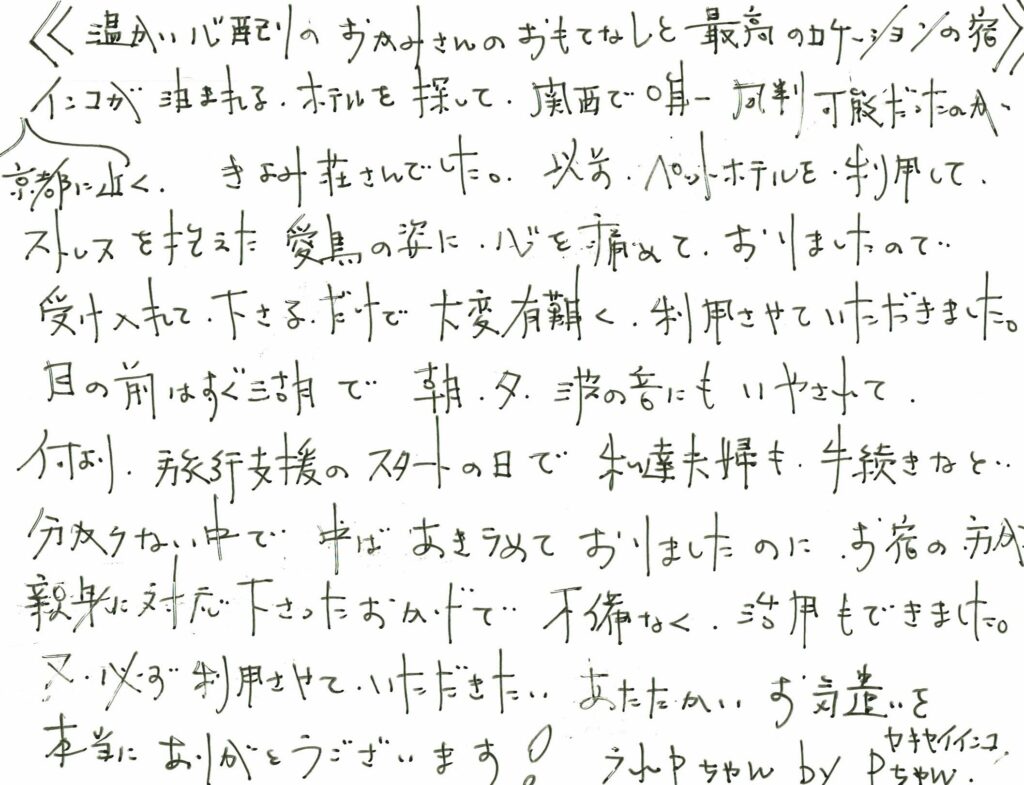 《温かい心配りのおかみさんのおもてなしと最高のロケーションの宿》
インコが泊まれる、ホテルを探して、関西で唯一同伴可能だったのが、
京都に近く、きよみ荘さんでした。以前、ペットホテルを利用して、
ストレスを抱えた愛鳥の姿に、心を痛めて、おりましたので
受け入れて、下さる、だけで大変有難く、利用させていただきました。
目の前はすぐ湖で朝、夕、波の音にもいやされて、
何より、旅行支援のスタートの日で私達夫婦も、手続きなど
分からない中で半ばあきらめておりましたのに、お宿の方が
親身に対応下さったおかげで不備なく、活用もできました。
又、必ず利用させて、いただきたい、あたたかいお気遣いを
本当にありがとうございます!
Pちゃん by Pちゃん.